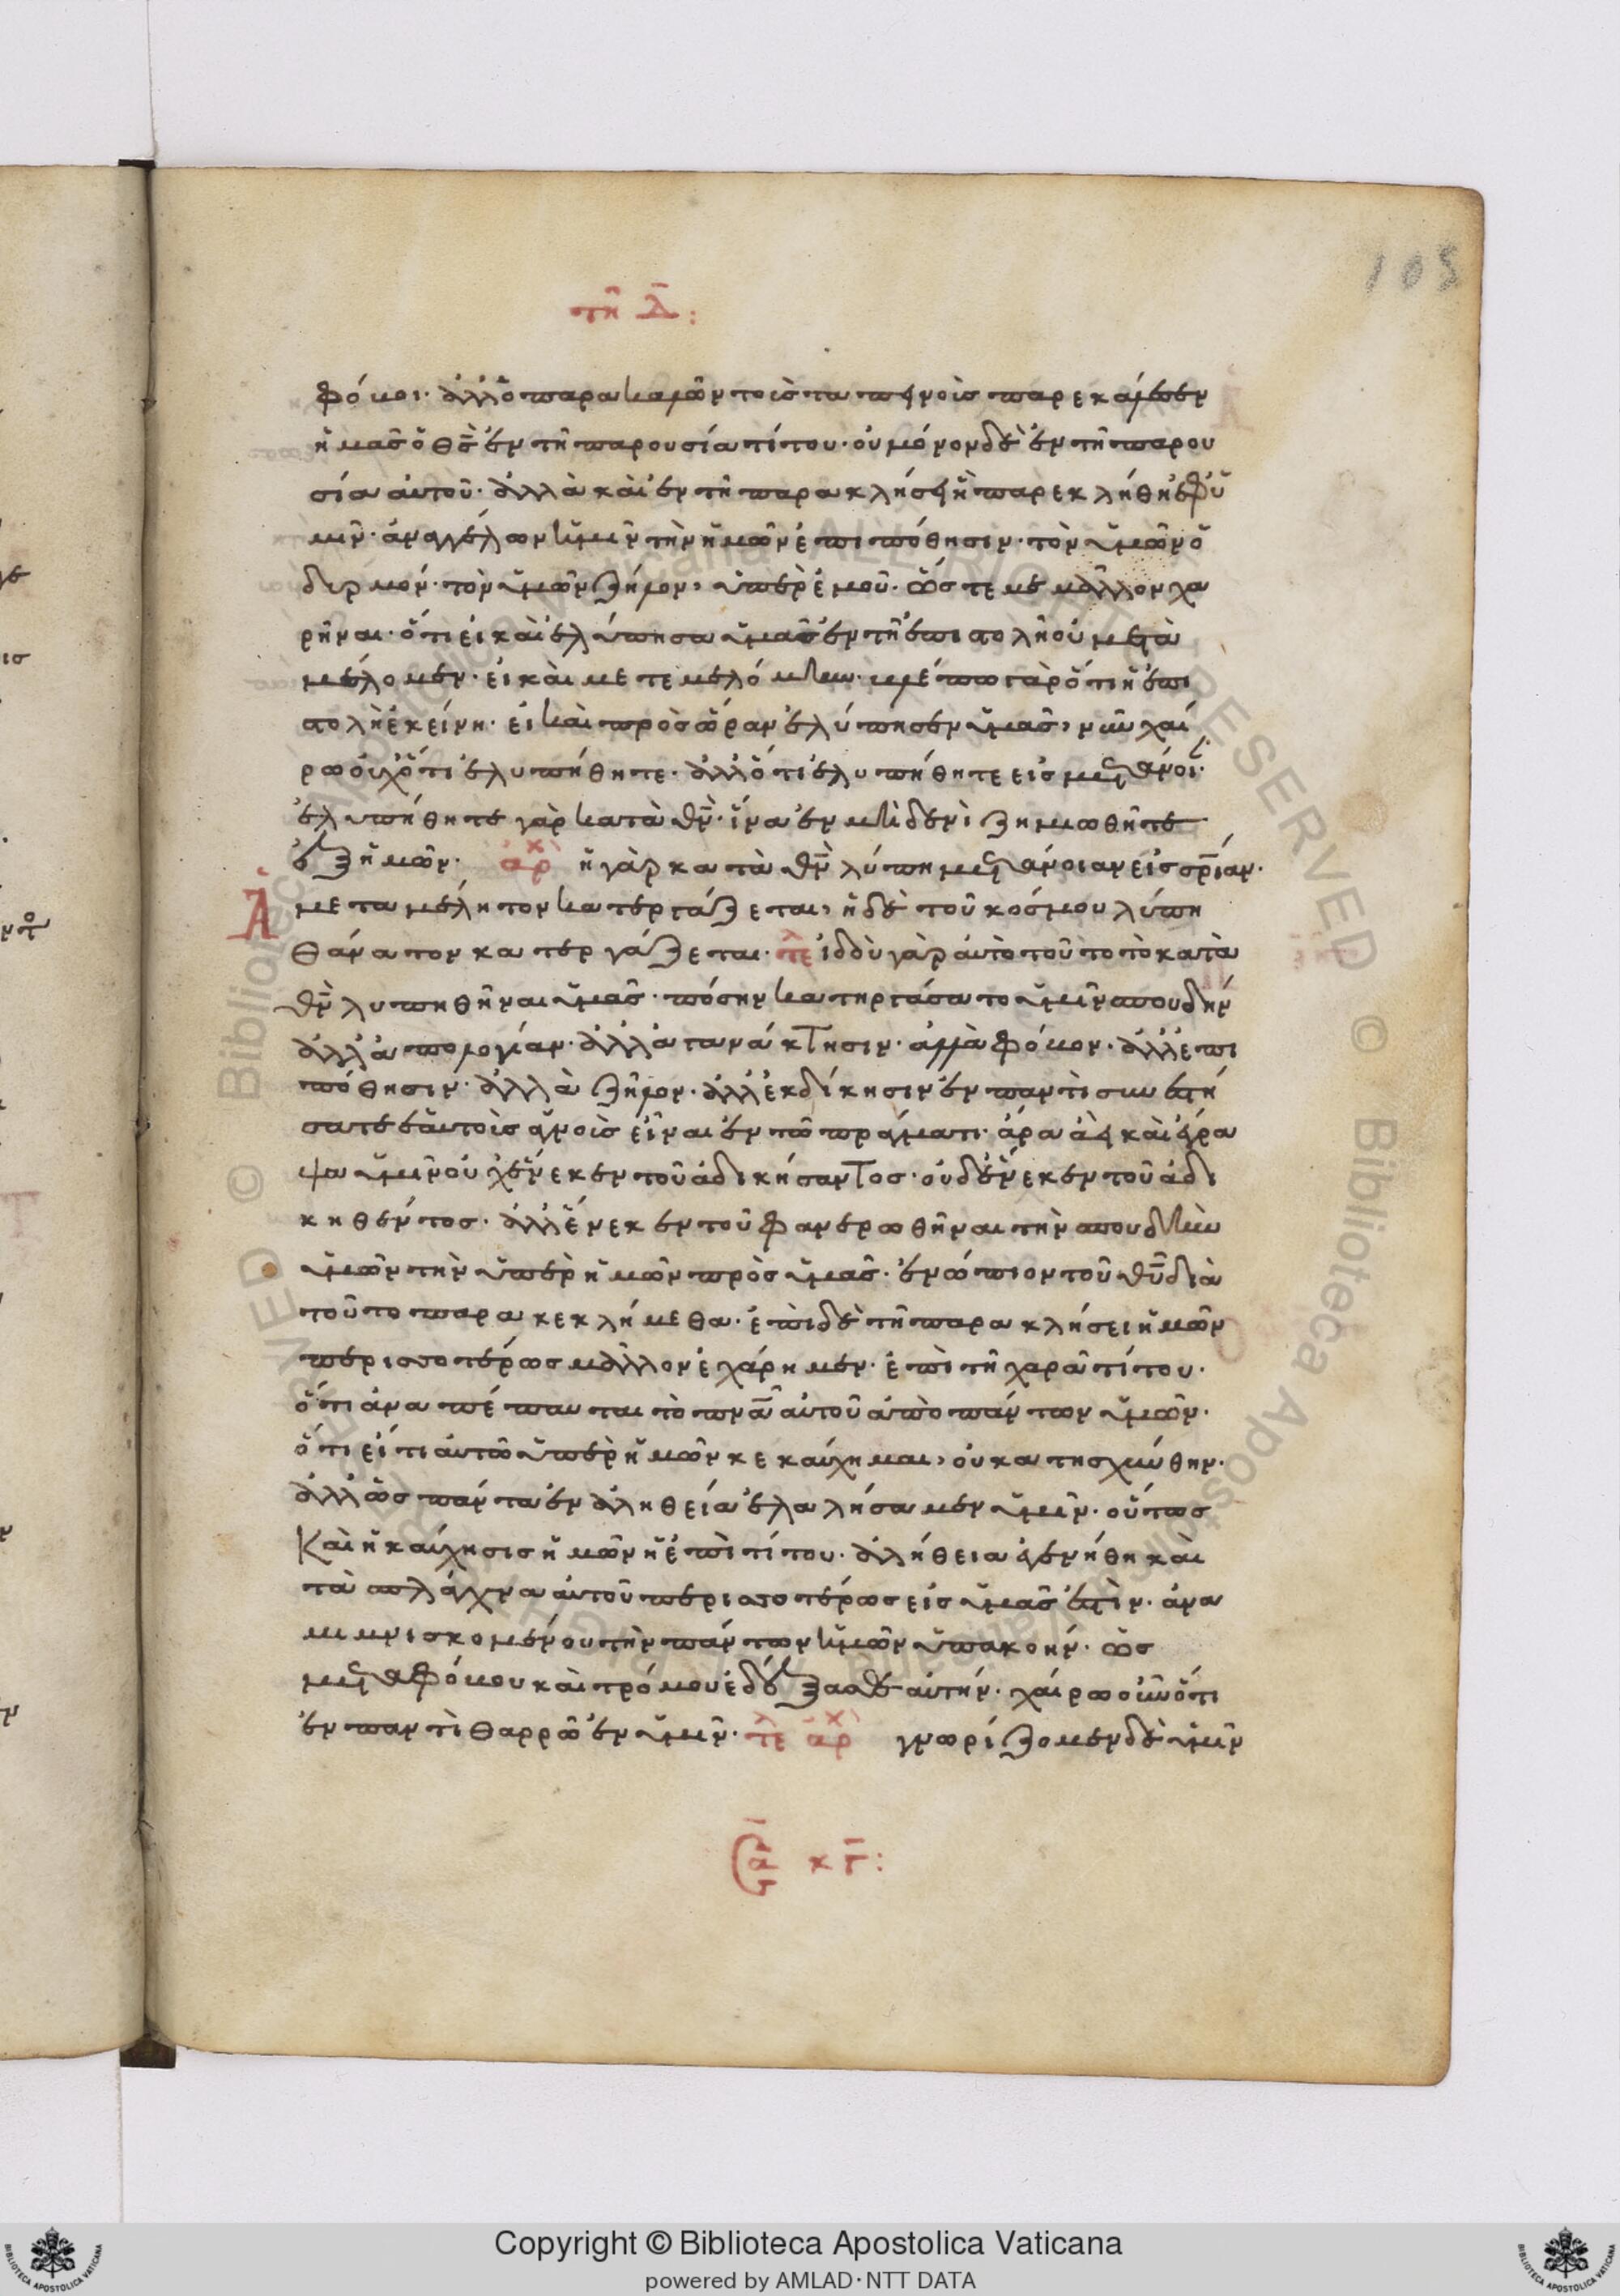 105
τῆ Δ̄:
φόβοι· ἀλλ' ὁ παρακαλῶν τοὺς ταπεινοὺς παρεκάλεσεν
ἡμᾶς ὁ θ̅ς̅ ἐν τῆ παρουσία τίτου· οὐ μόνον δὲ ἐν τῆ παρου
σία αὐτοῦ· ἀλλὰ καὶ ἐν τῆ παρακλήσει ἧ παρεκλήθη ἐφ' ὑ
μῖν· ἀναγγέλων ὑμῖν τὴν ἡμῶν ἐπιπόθησιν· τὸν ὑμῶν ὀ
δυρμόν· τὸν ὑμῶν ζήλον, ὑπὲρ ἐμοῦ· ὥστε με μᾶλλον χα
ρῆναι· ὅτι εἰ καὶ ἐλύπησα ὑμᾶς ἐν τῆ ἐπιστολῆ οὐ μετα
μέλομεν· εἰ καὶ μετεμελόμην· βλέπω γὰρ ὅτι ἡ ἐπι
στολὴ ἐκείνη· εἰ καὶ πρὸς ὥραν ἐλύπησεν ὑμᾶς, νῦν χαί
ρω οὐχ ὅτι ἐλυπήθητε· ἀλλ' ὅτι ἐλυπήθητε εἰς μετάνοι·
ἐλυπήθητε γὰρ κατὰ θ̅ν̅· ἵνα ἐν μὴδενὶ ζημιωθῆτε
ἐξ ἡμῶν· ἀρχ ἡ γὰρ κατὰ θ̅ν̅ λύπη μετάνοιαν εἰς σ̅ρ̅ίαν·
Ἀμεταμέλητον κατεργάζεται, ἡ δὲ τοῦ κόσμου λύπη
θάνατον κατεργάζεται· τελ ἰδοὺ γὰρ αὐτὸ τοῦτο τὸ κατὰ
θ̅ν̅ λυπηθῆναι ὑμᾶς· πόσην κατηργάσατο ὑμῖν σπουδὴν
ἀλλ' ἀπολογίαν· ἀλλ' ἀγανάκτησιν· ἀλλὰ φόβον· ἀλλ' ἐπι
πόθησιν· ἀλλὰ ζῆλον· ἀλλ' ἐκδίκησιν ἐν παντὶ συνεστή
σατε ἑαυτοὺς ἁγνοὺς εἶναι ἐν τῶ πράγματι· ἄρα εἰ καὶ ἔγρα
ψα ὑμῖν οὐχ ἕνεκεν τοῦ ἀδικήσαντος· οὐδ' ἕνεκεν τοῦ ἀδι
κηθέντος· ἀλλ' ἕνεκεν τοῦ φανερωθῆναι τὴν σπουδὴν
ὑμῶν τὴν ὑπὲρ ἡμῶν πρὸς ὑμᾶς· ἐνώπιον τοῦ θ̅υ̅ διὰ
τοῦτο παρακεκλήμεθα· ἐπὶ δὲ τῆ παρακλήσει ἡμῶν
περισσοτέρως μᾶλλον ἐχάρημεν· ἐπὶ τῆ χαρᾶ τίτου·
ὅτι ἀναπέπαυται τὸ π̅ν̅α̅ αὐτοῦ ἀπὸ πάντων ὑμῶν·
ὅτι εἴ τι αὐτῶ ὑπὲρ ἡμῶν κεκαύχημαι, οὐ κατησχύνθην·
ἀλλ' ὡς πάντα ἐν ἀληθεία ἐλαλήσαμεν ὑμῖν· οὕτως
Καὶ ἡ καύχησις ἡμῶν ἡ ἐπὶ τίτου· ἀλήθεια ἐγενήθη καὶ
τὰ σπλάγχνα αὐτοῦ περισσοτέρως εἰς ὑμᾶς ἐστὶν· ἀνα
μιμνισκομένου τὴν πάντων ὑμῶν ὑπακοήν· ὡς
μετὰ φόβου καὶ τρόμου ἐδέξασθε αὐτὴν· χαίρω οὖν ὅτι
ἐν παντὶ θαρρῶ ἐν ὑμῖν· τελ ἀρχ γνωρίζομεν δὲ ὑμῖν
Copyright © Biblioteca Apostolica Vaticana
powered by AMLAD·NTT DATA